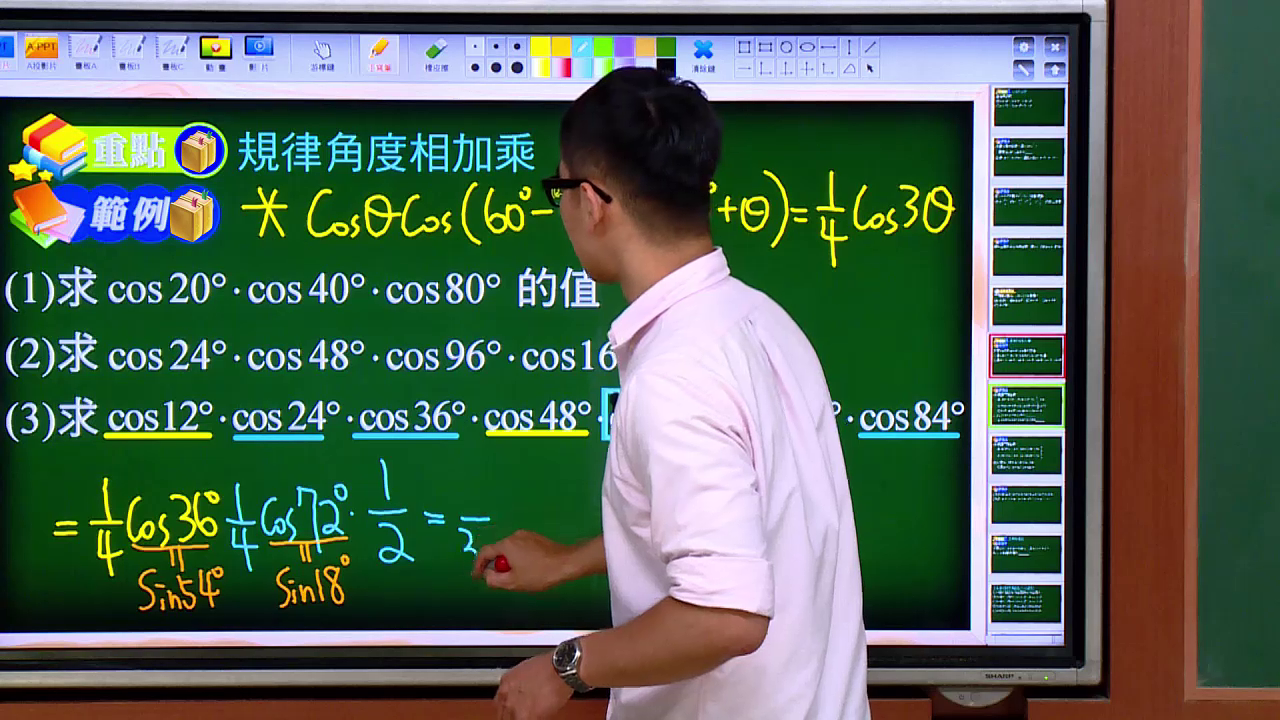 A PPT
A投影片
畫板A
畫板B
畫板C
動畫
影片
游標鍵
橡皮擦
清除鍵
重點 規律角度相加乘
範例 * Cosθ Cos(60°- +θ)=1/4 Cos3θ
(1)求 cos20°·cos40°·cos80° 的值
(2)求 cos24°·cos48°·cos96°·cos16
(3)求 cos12°·cos24°·cos36°·cos48°· °·cos84°
= 1/4 Cos36° 1/4 Cos72° · 1/2 = /2
Sin54° Sin18°
SHARP